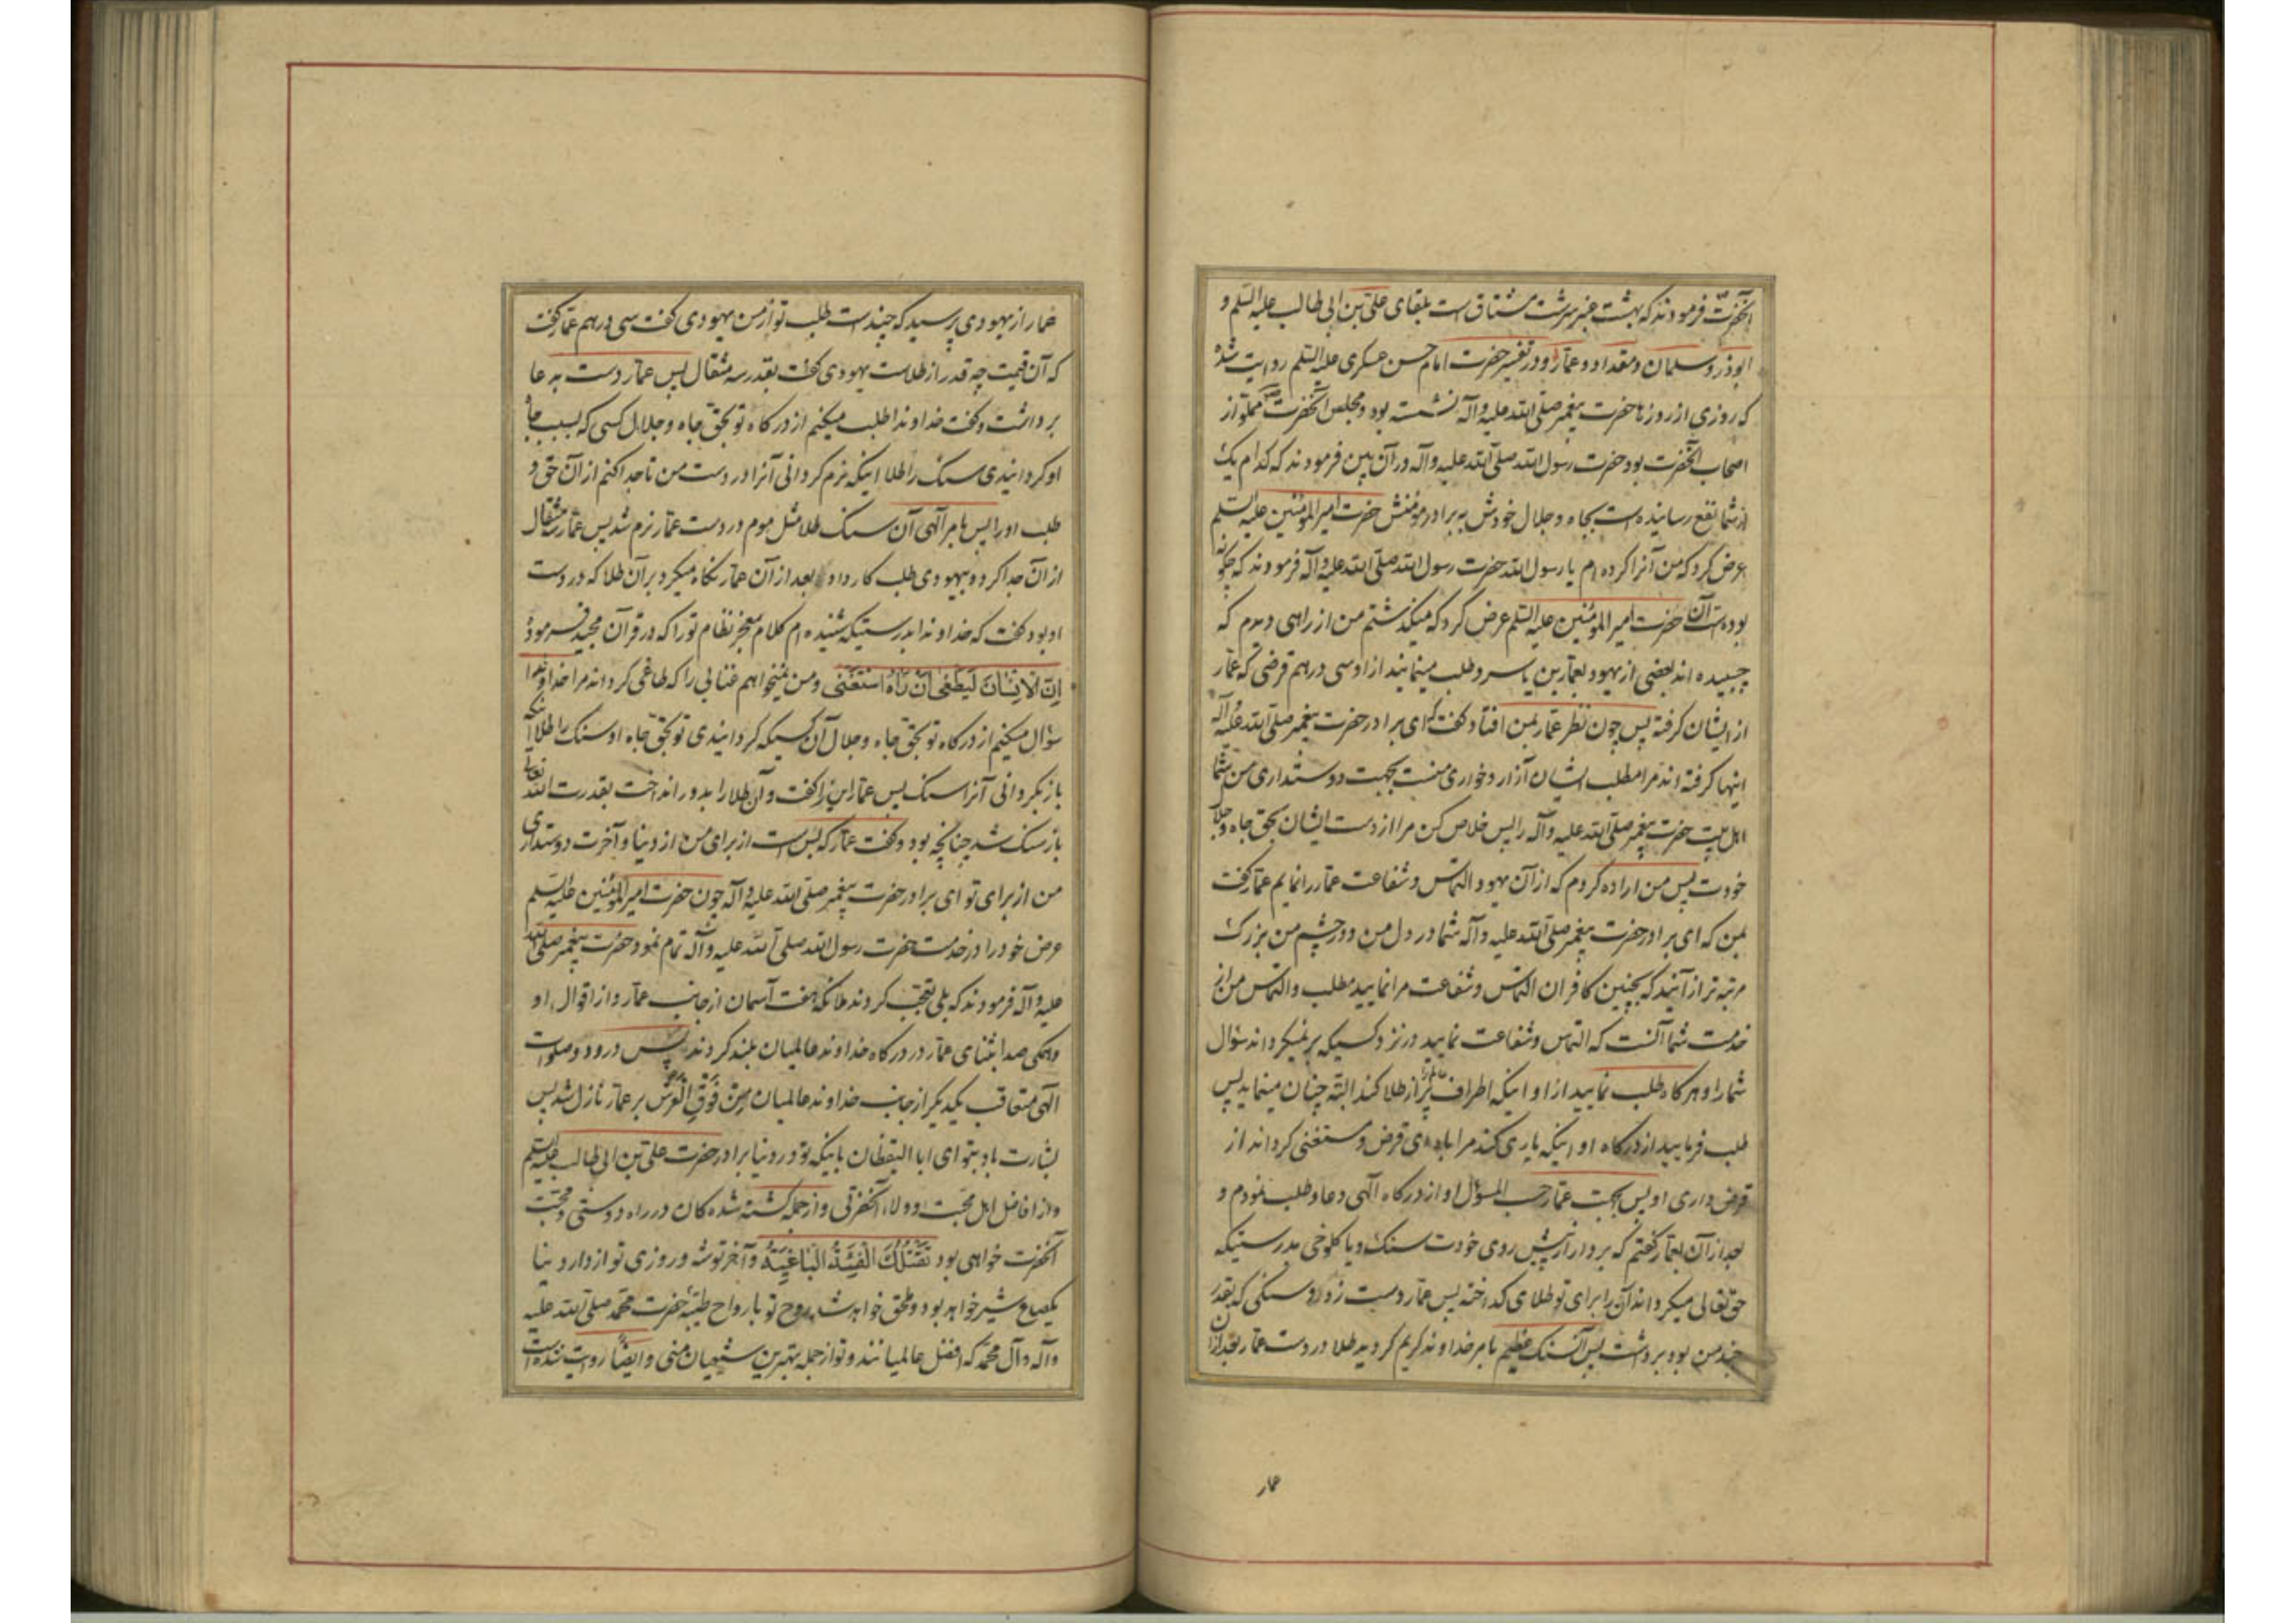 آنحضرت فرمودند که بهشت عنبر سرشت مشتاق است بلقای علی بن ابی طالب علیه السلم و
ابوذر و سلمان و مقداد و عمار و در تفسیر حضرت امام حسن عسکری علیه السلم روایت شده
که روزی از روزها حضرت پیغمبر صلی الله علیه وآله نشسته بود و مجلس آنحضرت مملو از
اصحاب آنحضرت بود حضرت رسول الله صلی الله علیه وآله در آن بین فرمودند که کدام یک
از شما نفع رسانیده است بجاه و جلال خودش به برادر مؤمنش حضرت امیر المؤمنین علیه السلم
عرض کرد که من آنرا کرده ام یا رسول الله حضرت رسول الله صلی الله علیه وآله فرمودند که چگونه
بوده است آن حضرت امیر المؤمنین علیه السلم عرض کرد که میگذشتم من از راهی دیدم که
چسبیده اند بعضی از یهود بعمار بن یاسر و طلب مینمایند از او سی درهم قرضی که عمار
از ایشان کرفته پس چون نظر عمار بمن افتاد کفت که ای برادر حضرت پیغمبر صلی الله علیه وآله
اینها کرفته اند مرا مطلب ایشان آزار و خواری منست بجهت دوستداری من شما
اهل بیت حضرت پیغمبر صلی الله علیه وآله را پس خلاص کن مرا از دست ایشان بحق جاه و جلال
خودت پس من اراده کردم که از آن یهود التماس و شفاعت عمار را نمایم عمار کفت
بمن که ای برادر حضرت پیغمبر صلی الله علیه وآله شما در دل من و در چشم من بزرک
مرتبه تر از آنید که بچنین کافران التماس و شفاعت مرا نمایید مطلب و التماس من از
خدمت شما آنست که التماس و شفاعت نمایید در نزد کسیکه برنمیکرداند سؤال
شما را و هر کاه طلب نمایید از او اینکه اطراف عالم را پر از طلا کند البته چنان مینماید پس
طلب فرمایید از درکاه او اینکه یاری کند مرا بادای قرض و مستغنی کرداند از
قرض داری او پس بجهت عمار حسب المسؤل او از درکاه آلهی دعا و طلب نمودم و
بعد از آن بعمار کفتم که بردار از پیش روی خودت سنک و یا کلوخی بدرستیکه
حق تعالی میکرداند آن را برای تو طلای کداخته پس عمار دست زد و سنکی که بقدر
چند من بود برداشت پس آن سنک عظیم بامر خداوند کریم کردید طلا در دست عمار بعد از آن
عمار
عمار از یهودی پرسید که چند است طلب تو از من یهودی کفت سی درهم عمار کفت
که آن قیمت چه قدر از طلاست یهودی کفت بقدر سه مثقال پس عمار دست به دعا
برداشت و کفت خداوندا طلب میکنم از درکاه تو بحق جاه و جلال کسی که بسبب جاه
او کردانیدی سنک را طلا اینکه نرم کردانی آنرا در دست من تا جدا کنم از آن حق و
طلب او را پس بامر آلهی آن سنک طلا مثل موم در دست عمار نرم شد پس عمار سه مثقال
از آن جدا کرد و بیهودی طلب کار داد بعد از آن عمار نکاه میکرد بر آن طلا که در دست
او بود کفت که خداوندا بدرستیکه شنیده ام کلام معجز نظام تو را که در قرآن مجید فرموده
اِنَّ الاِنسَانَ لَیَطغی اَن رَآهُ استَغنی و من نمیخواهم غنایی را که طاغی کرداند مرا خداوندا
سؤال میکنم از درکاه تو بحق جاه و جلال آن کسیکه کردانیدی تو بحق جاه او سنک را طلا اینکه
باز بکردانی آنرا سنک پس عمار این را کفت و آن طلا را بدور انداخت بقدرت الله تعالی
باز سنک شد چنانچه بود و کفت عمار که بس است از برای من از دنیا و آخرت دوستداری
من از برای تو ای برادر حضرت پیغمبر صلی الله علیه وآله چون حضرت امیر المؤمنین علیه السلم
عرض خود را در خدمت حضرت رسول الله صلی الله علیه وآله تمام نمود حضرت پیغمبر صلی الله
علیه وآله فرمودند که بلی تعجب کردند ملائکه هفت آسمان از جانب عمار و از اقوال او
و همکی صدا بثنای عمار در درکاه خداوند عالمیان بلند کردند پس درود و صلوات
آلهی متعاقب یکدیکر از جانب خداوند عالمیان مِن فَوقِ العَرشِ بر عمار نازل شد پس
بشارت باد بتو ای ابا الیقظان باینکه تو در دنیا برادر حضرت علی بن ابی طالب علیه السلم
و از افاضل اهل محبت و ولاء آنحضرتی و از جمله کشته شده کان در راه دوستی و محبت
آنحضرت خواهی بود تَقتُلُکَ الفِئَةُ البَاغِیَةُ و آخر توشه و روزی تو از دار دنیا
یکصاع شیر خواهد بود و ملحق خواهد شد روح تو بارواح طیبه حضرت محمد صلی الله علیه
وآله و آل محمد که افضل عالمیانند و تو از جمله بهترین شیعیان منی و ایضا روایت شده است